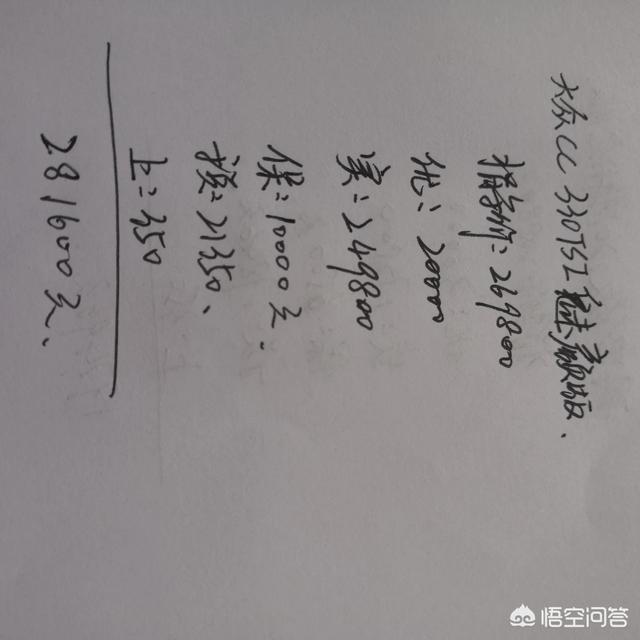 大众CC 330TSI 魅颜版、
指导价=269800
优=20000
实=249800
保=10000元.
=21350、
上=350
281600元、
悟空问答